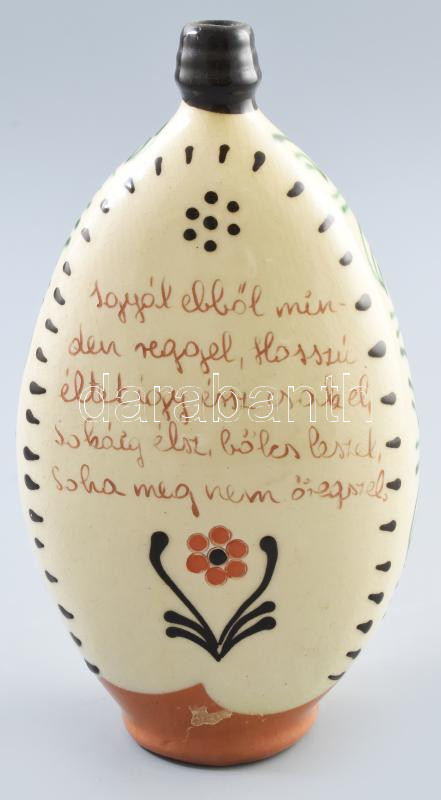 Igyál ebből min-
den reggel, Hosszú
sokáig elsz, bölcs leszel,
soha meg nem öregszel.
darabanth